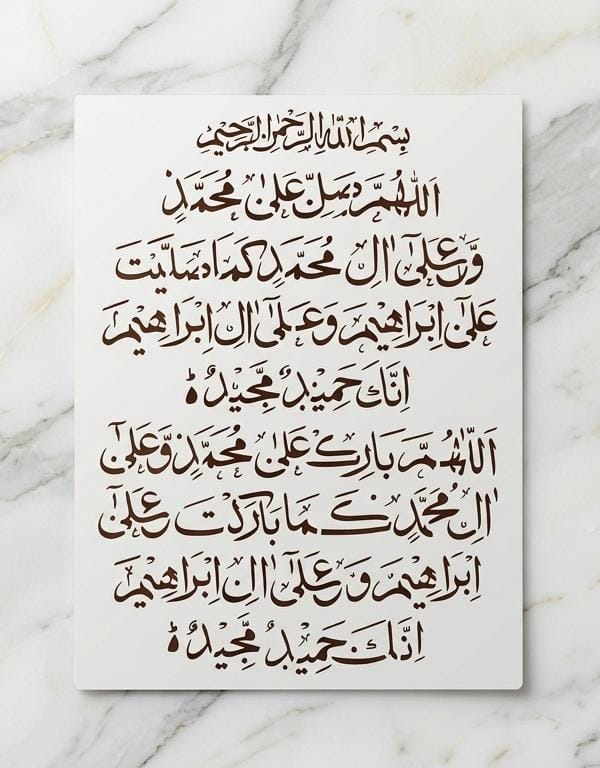 بِسْمِ اللّٰهِ الرَّحْمٰنِ الرَّحِيْمِ
اَللّٰهُمَّ صَلِّ عَلٰى مُحَمَّدٍ
وَّعَلٰٓى اٰلِ مُحَمَّدٍ كَمَا صَلَّيْتَ
عَلٰٓى اِبْرَاهِيْمَ وَعَلٰٓى اٰلِ اِبْرَاهِيْمَ
اِنَّكَ حَمِيْدٌ مَّجِيْدٌ ؕ
اَللّٰهُمَّ بَارِكْ عَلٰى مُحَمَّدٍ وَّعَلٰٓى
اٰلِ مُحَمَّدٍ كَمَا بَارَكْتَ عَلٰٓى
اِبْرَاهِيْمَ وَعَلٰٓى اٰلِ اِبْرَاهِيْمَ
اِنَّكَ حَمِيْدٌ مَّجِيْدٌ ؕ